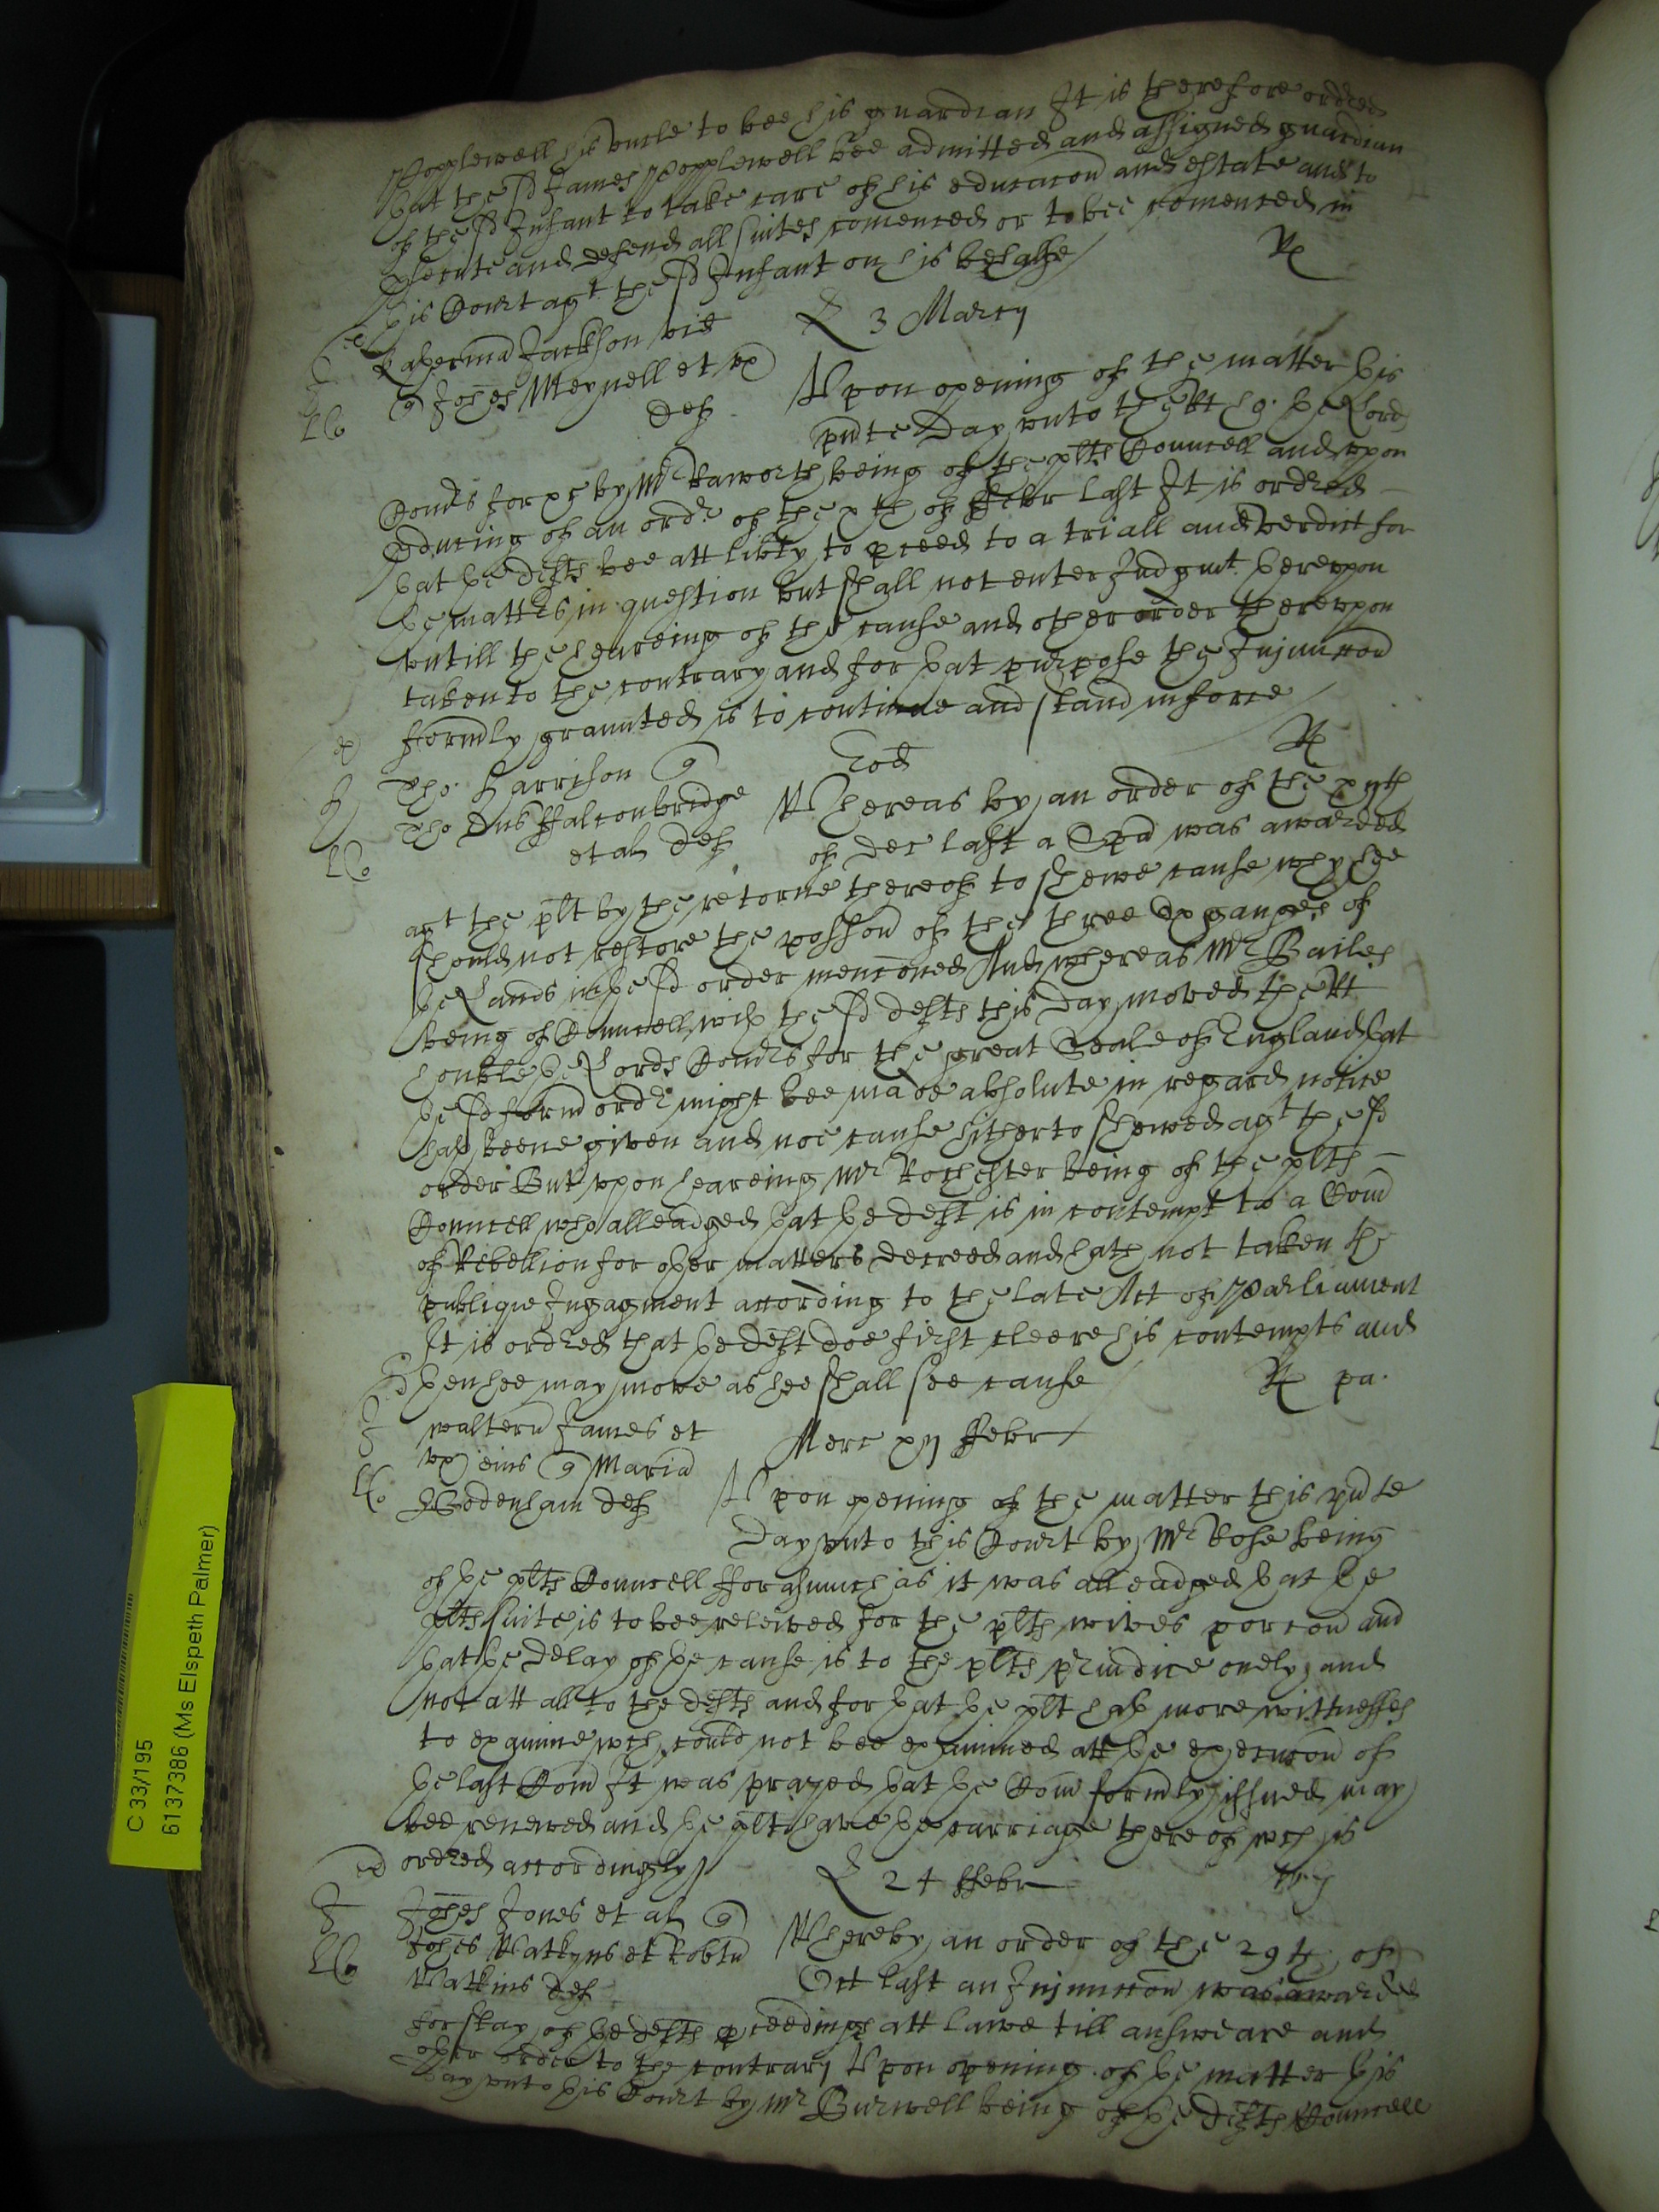 Popplewell his vncle to bee his guardian It is therefore ordred
þat the sd James Popplewell bee admitted and assigned guardian
of the sd Infant to take care of his educacon and estate and to
psecute and defend all suites comenced or to bee comenced in
þis Court agt the sd Infant on his behalfe
Rp
Kaþerina Jackson vid
L 3 Marcij
q Johes Meynell et vx
def
Vpon opening of the matter þis
pnte Day vnto the Rt ho: þe Lord
Comrs for xe by Mr Raworth being of the plts Councell and vpon
pducing of an ordr of the xth of ffebr last It is ordred
þat þe defts bee att libty to pceed to a triall and verdict for
þe mattrs in question but shall not enter Judgmt þerevpon
vntill the heareing of the cause and other order therevpon
taken to the contrary and for þat purpose the Injunccon
formly graunted is to continue and stand in force
Tho: Harrison q
Eod
Rp
Tho Dns ffalconbridge
et al def
Whereas by an order of the xijth
of Dec last a Spa was awarded
agt the plt by the retorne thereof to shewe cause why hee
should not restore the possson of the three Oxganges of
þe Lands in þe sd order menconed And whereas Mr Bailes
being of Councell wiþ the sd defts this Day moved the Rt
honble þe Lords Comrs for the great Seale of England þat
þe sd form ordr might bee made absolute in regard notice
haþ beene given and noe cause hitherto shewed agt the sd
order But vpon heareing Mr Rochester being of the plts
Councell who alleadged þat þe deft is in contempt to a Com
of Rebellion for oþer matters decreed and hath not taken the
publique Ingagment according to the late Act of Parliament
It is ordred that þe deft doe first cleere his contempts and
þen hee may move as hee shall see cause
Rp pa.
Walterm James et
Merc xij ffebr
vx eius q Maria
Bodenham def
Vpon opening of the matter this pnte
Day vnto this Court by Mr Rose being
of þe plts Councell fforasmuch as it was alleadged þat þe
plts suite is to bee releived for the plts wives porcon and
þat þe Delay of þe cause is to the plts preiudice onely and
not att all to the defts and for þat þe plt haþ more wittnesses
to examine wch could not bee examined att þe execucon of
þe last Com It was prayed þat þe Com formly issued may
bee renewed and þe plt have þe carriage thereof wch is
ordred accordingly
L 24 ffebr
Johes Jones et al q
Johes Watkyns et Robtu
Watkins def
Whereby an order of the 29th of
Oct last an Injunccon was awarded
for stay of þe defts pceedings att lawe till answeare and
oþer order to the contrary Vpon opening of þe matter þis
Day vnto þis Court by Mr Burwell being of þe defts Councell
C 33/195
6137386 (Ms Elspeth Palmer)